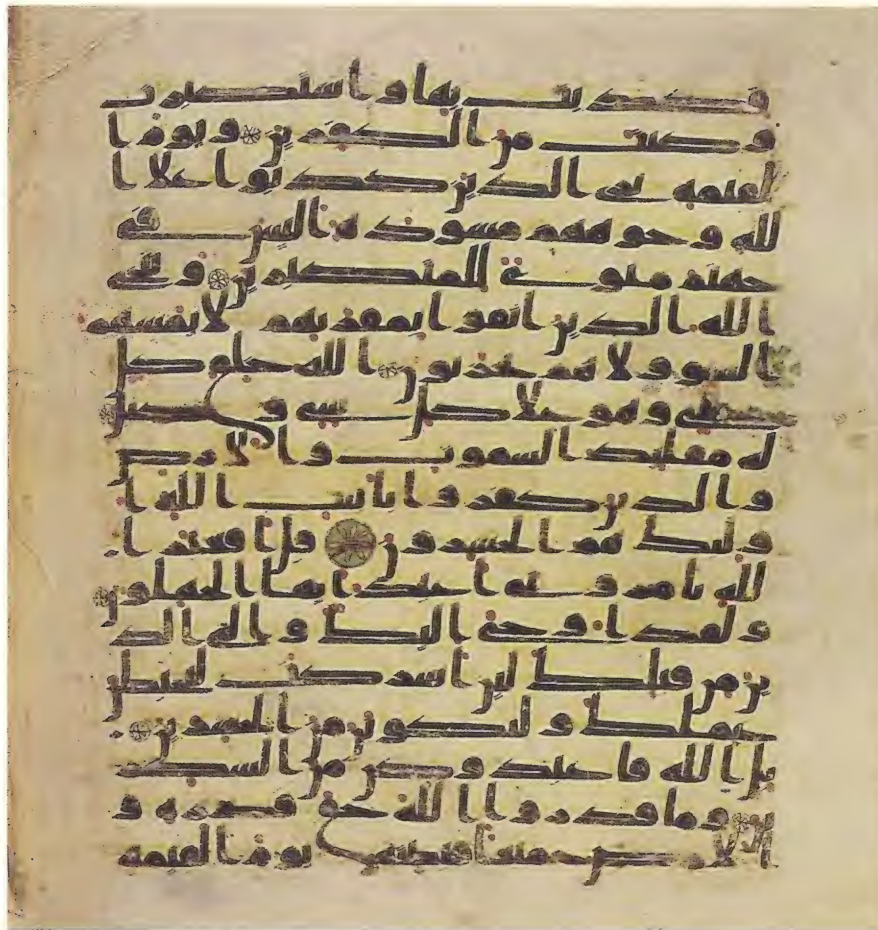 فكذبت بها واستكبرت
وكنت من الكفرين ويوم ا
لقيمة ترى الذين كذبوا على ا
لله وجوههم مسودة اليس في
جهنم مثوى للمتكبرين وينجي
الله الذين اتقوا بمفازتهم لا يمسهم
السو ولا هم يحزنون الله خلق كل
شي وهو على كل شي وكيل
له مقليد السموت والارض
والذين كفروا بايت الله ا
ولئك هم الخسرون قل افغير ا
لله تامروني اعبد ايها الجهلون
ولقد اوحي اليك والى الذ
ين من قبلك لئن اشركت ليحبطن
عملك ولتكونن من الخسرين
بل الله فاعبد وكن من الشكر
ين وما قدروا الله حق قدره و
الارض جميعا قبضته يوم القيمة